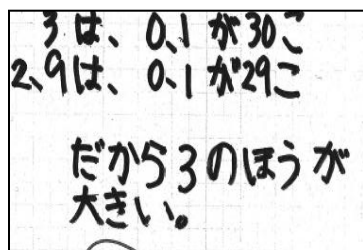 3は、0.1が30こ
2.9は、0.1が29こ
だから3のほうが
大きい。